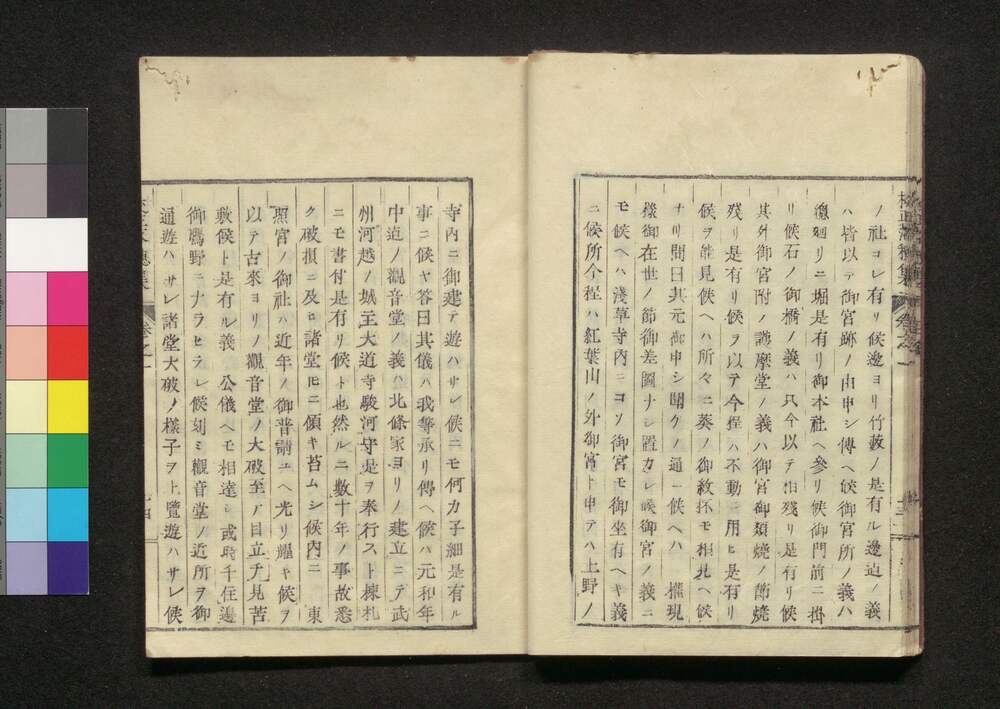 ノ社コレ有リ候邊ヨリ竹藪ノ是有ル邊迠ノ義
ハ皆以テ御宮跡ノ由申シ傳ヘ候御宮所ノ義ハ
廻リニ堀是有リ御本社ヘ參リ候御門前ニ掛
リ候石ノ御橋ノ義ハ只今以テ相殘リ是有リ候
其外御宮附ノ護摩堂ノ義ハ御宮御類燒ノ節燒
殘リ是有リ候ヲ以テ今程ハ不動ニ用ヒ是有リ
候ヲ能見候ヘハ所々ニ葵ノ御紋抔モ相見ヘ候
ナリ問曰其元御申シ聞クノ通ニ候ヘハ 權現
樣御在世ノ節御差圖ナシ置カレ候御宮ノ義ニ
モ候ヘハ淺草寺内ニコソ御宮モ御坐有ヘキ義
ニ候所今程ハ紅葉山ノ外御宮ト申テハ上野ノ
寺内ニ御建テ遊ハサレ候ニモ何カ子細是有ル
事ニ候ヤ答曰其儀ハ我等承リ傳ヘ候ハ元和年
中迠ノ觀音堂ノ義ハ北條家ヨリノ建立ニテ武
州河越ノ城主大道寺駿河守是ヲ奉行スト棟札
ニモ書付是有リ候ト也然ルニ數十年ノ事故悉
ク破損ニ及ヒ諸堂圧ニ傾キ苔ムシ候内ニ 東
照宮ノ御社ハ近年ノ御普請ユヘ光リ耀キ候ヲ
以テ古來ヨリノ觀音堂ノ大破至ノ目立チ見苦
敷候ト是有ル義 公儀ヘモ相達シ或時千住邊
御鷹野ニナラセラレ候刻ミ觀音堂ノ近所ヲ御
通遊ハサレ諸堂大破ノ樣子ヲ上覽遊ハサレ候